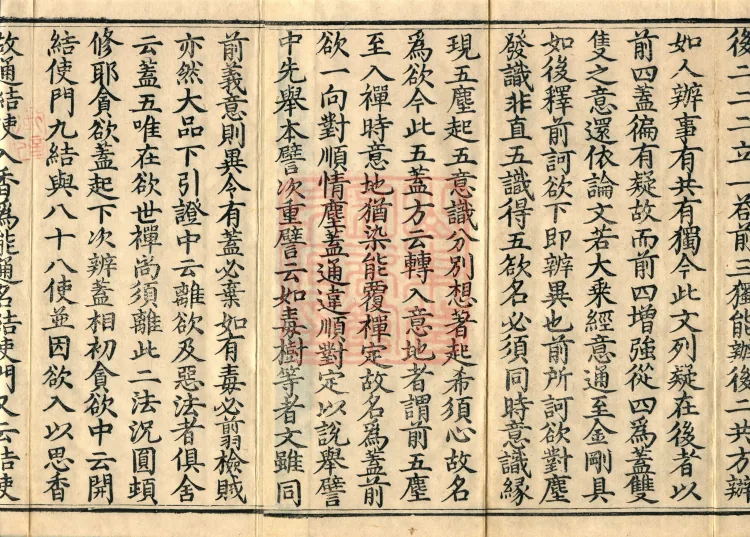 後二二二立一各前三獨能辦後二共方辦
如人辦事有共有獨今此文列疑在後者以
前四蓋徧有疑故而前四增強從四爲蓋雙
隻之意還依論文若大乘經意通至金剛具
如後釋前訶欲下即辨異也前所訶欲對塵
發識非直五識得五欲名必須同時意識緣
現五塵起五意識分別想著起希須心故名
爲欲今此五蓋方云轉入意地者謂前五塵
至入禪時意地猶染能覆禪定故名爲蓋前
欲一向對順情塵蓋通違順對定以說舉譬
中先舉本譬次重譬云如毒樹等者文雖同
前義意則異今有蓋必棄如有毒必翦檢賊
亦然大品下引證中云離欲及惡法者俱舍
云蓋五唯在欲世禪尚須離此二法況圓頓
修耶貪欲蓋起下次辨蓋相初貪欲中云開
結使門九結與八十八使並因欲入以思香
故通結使入香爲能通名結使門又云結使